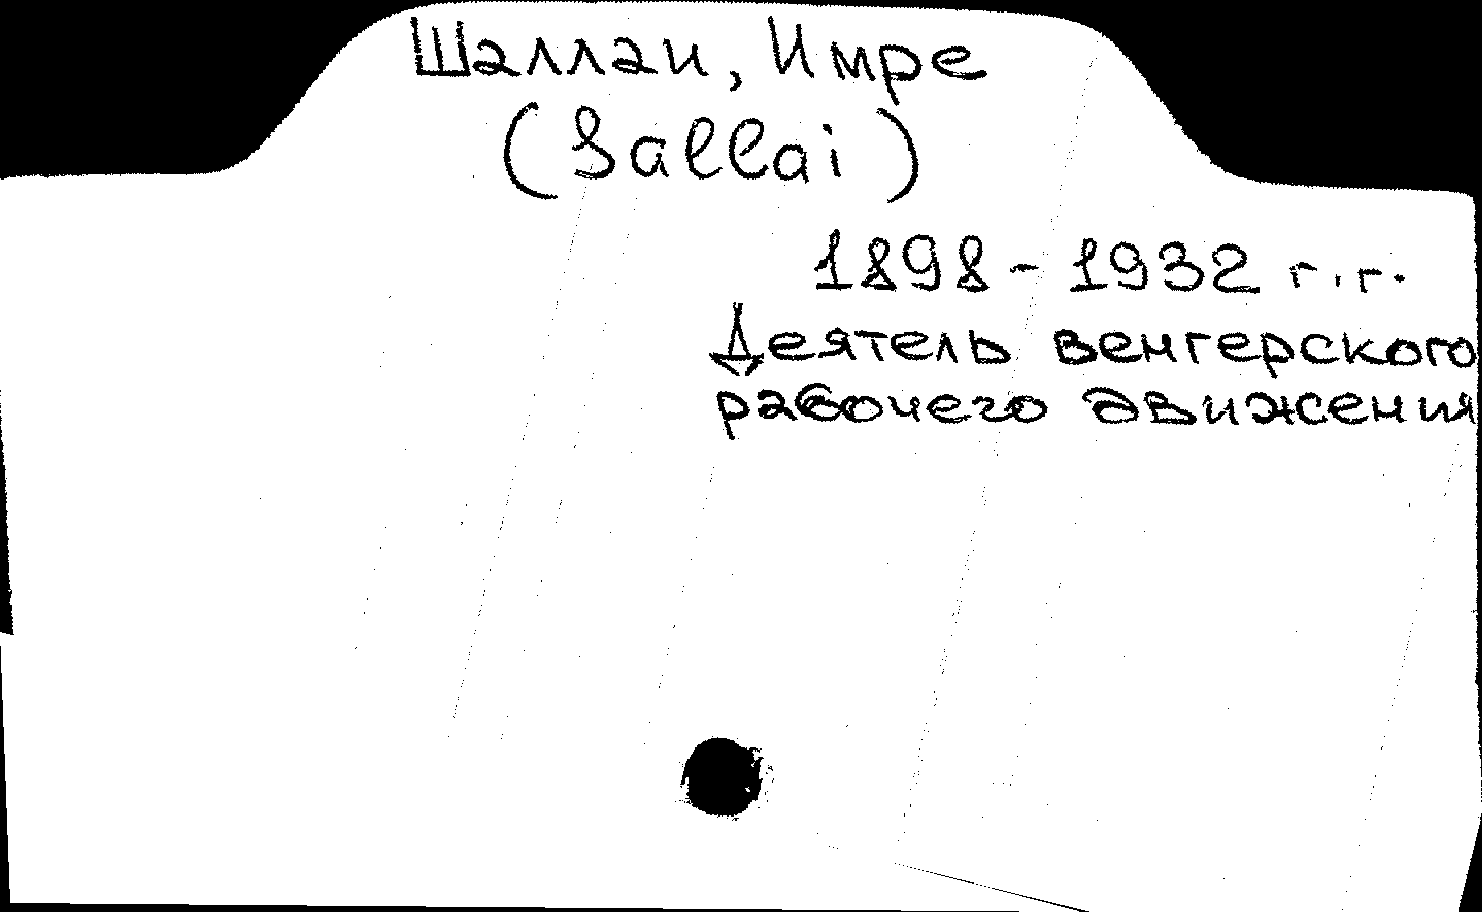 Шаллаи, Имре
(Sallai)
1898-1932 г.г.
Деятель венгерского
рабочего движения